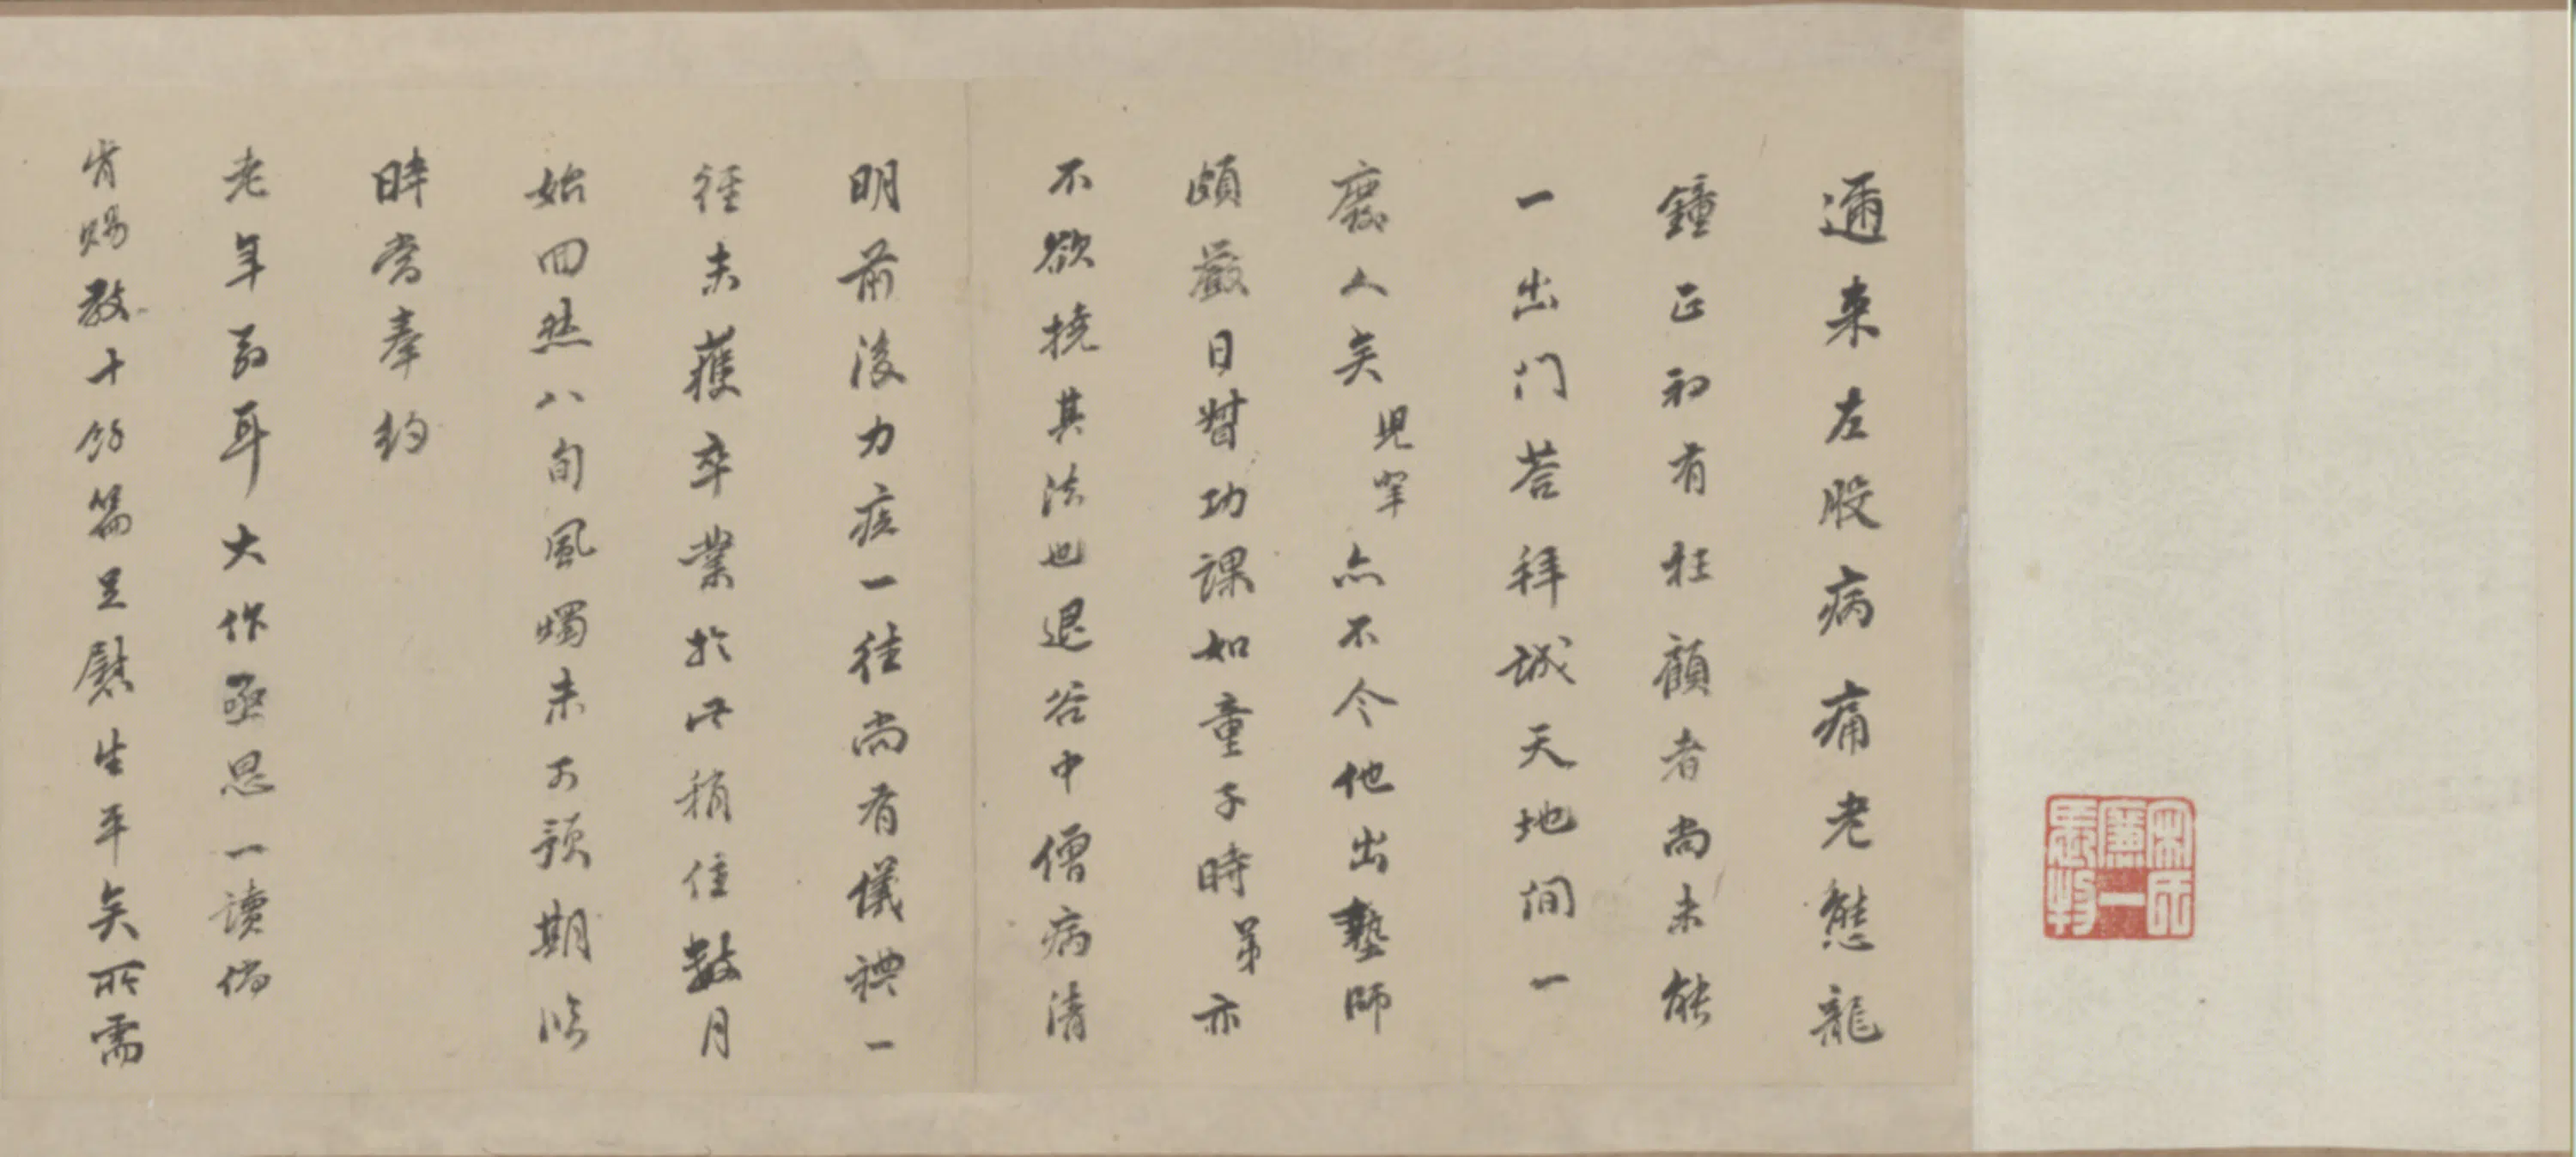 邇来左股病痛老態龍
鍾正初有枉顧者尚未能
一出门荅拜诚天地间一
廢人矣兒罕亦不令他出塾師
頗嚴日督功課如童子時弟亦
不欲撓其法也退谷中僧病清
明前後力疾一往尚有儀禮一
經未獲卒業於此稍住數月
始回然八旬風燭未可預期临
時當奉約
老年翁耳大作亟思一讀倘
肯賜教十餘篇足慰生平矣所需
宋氏
廉一